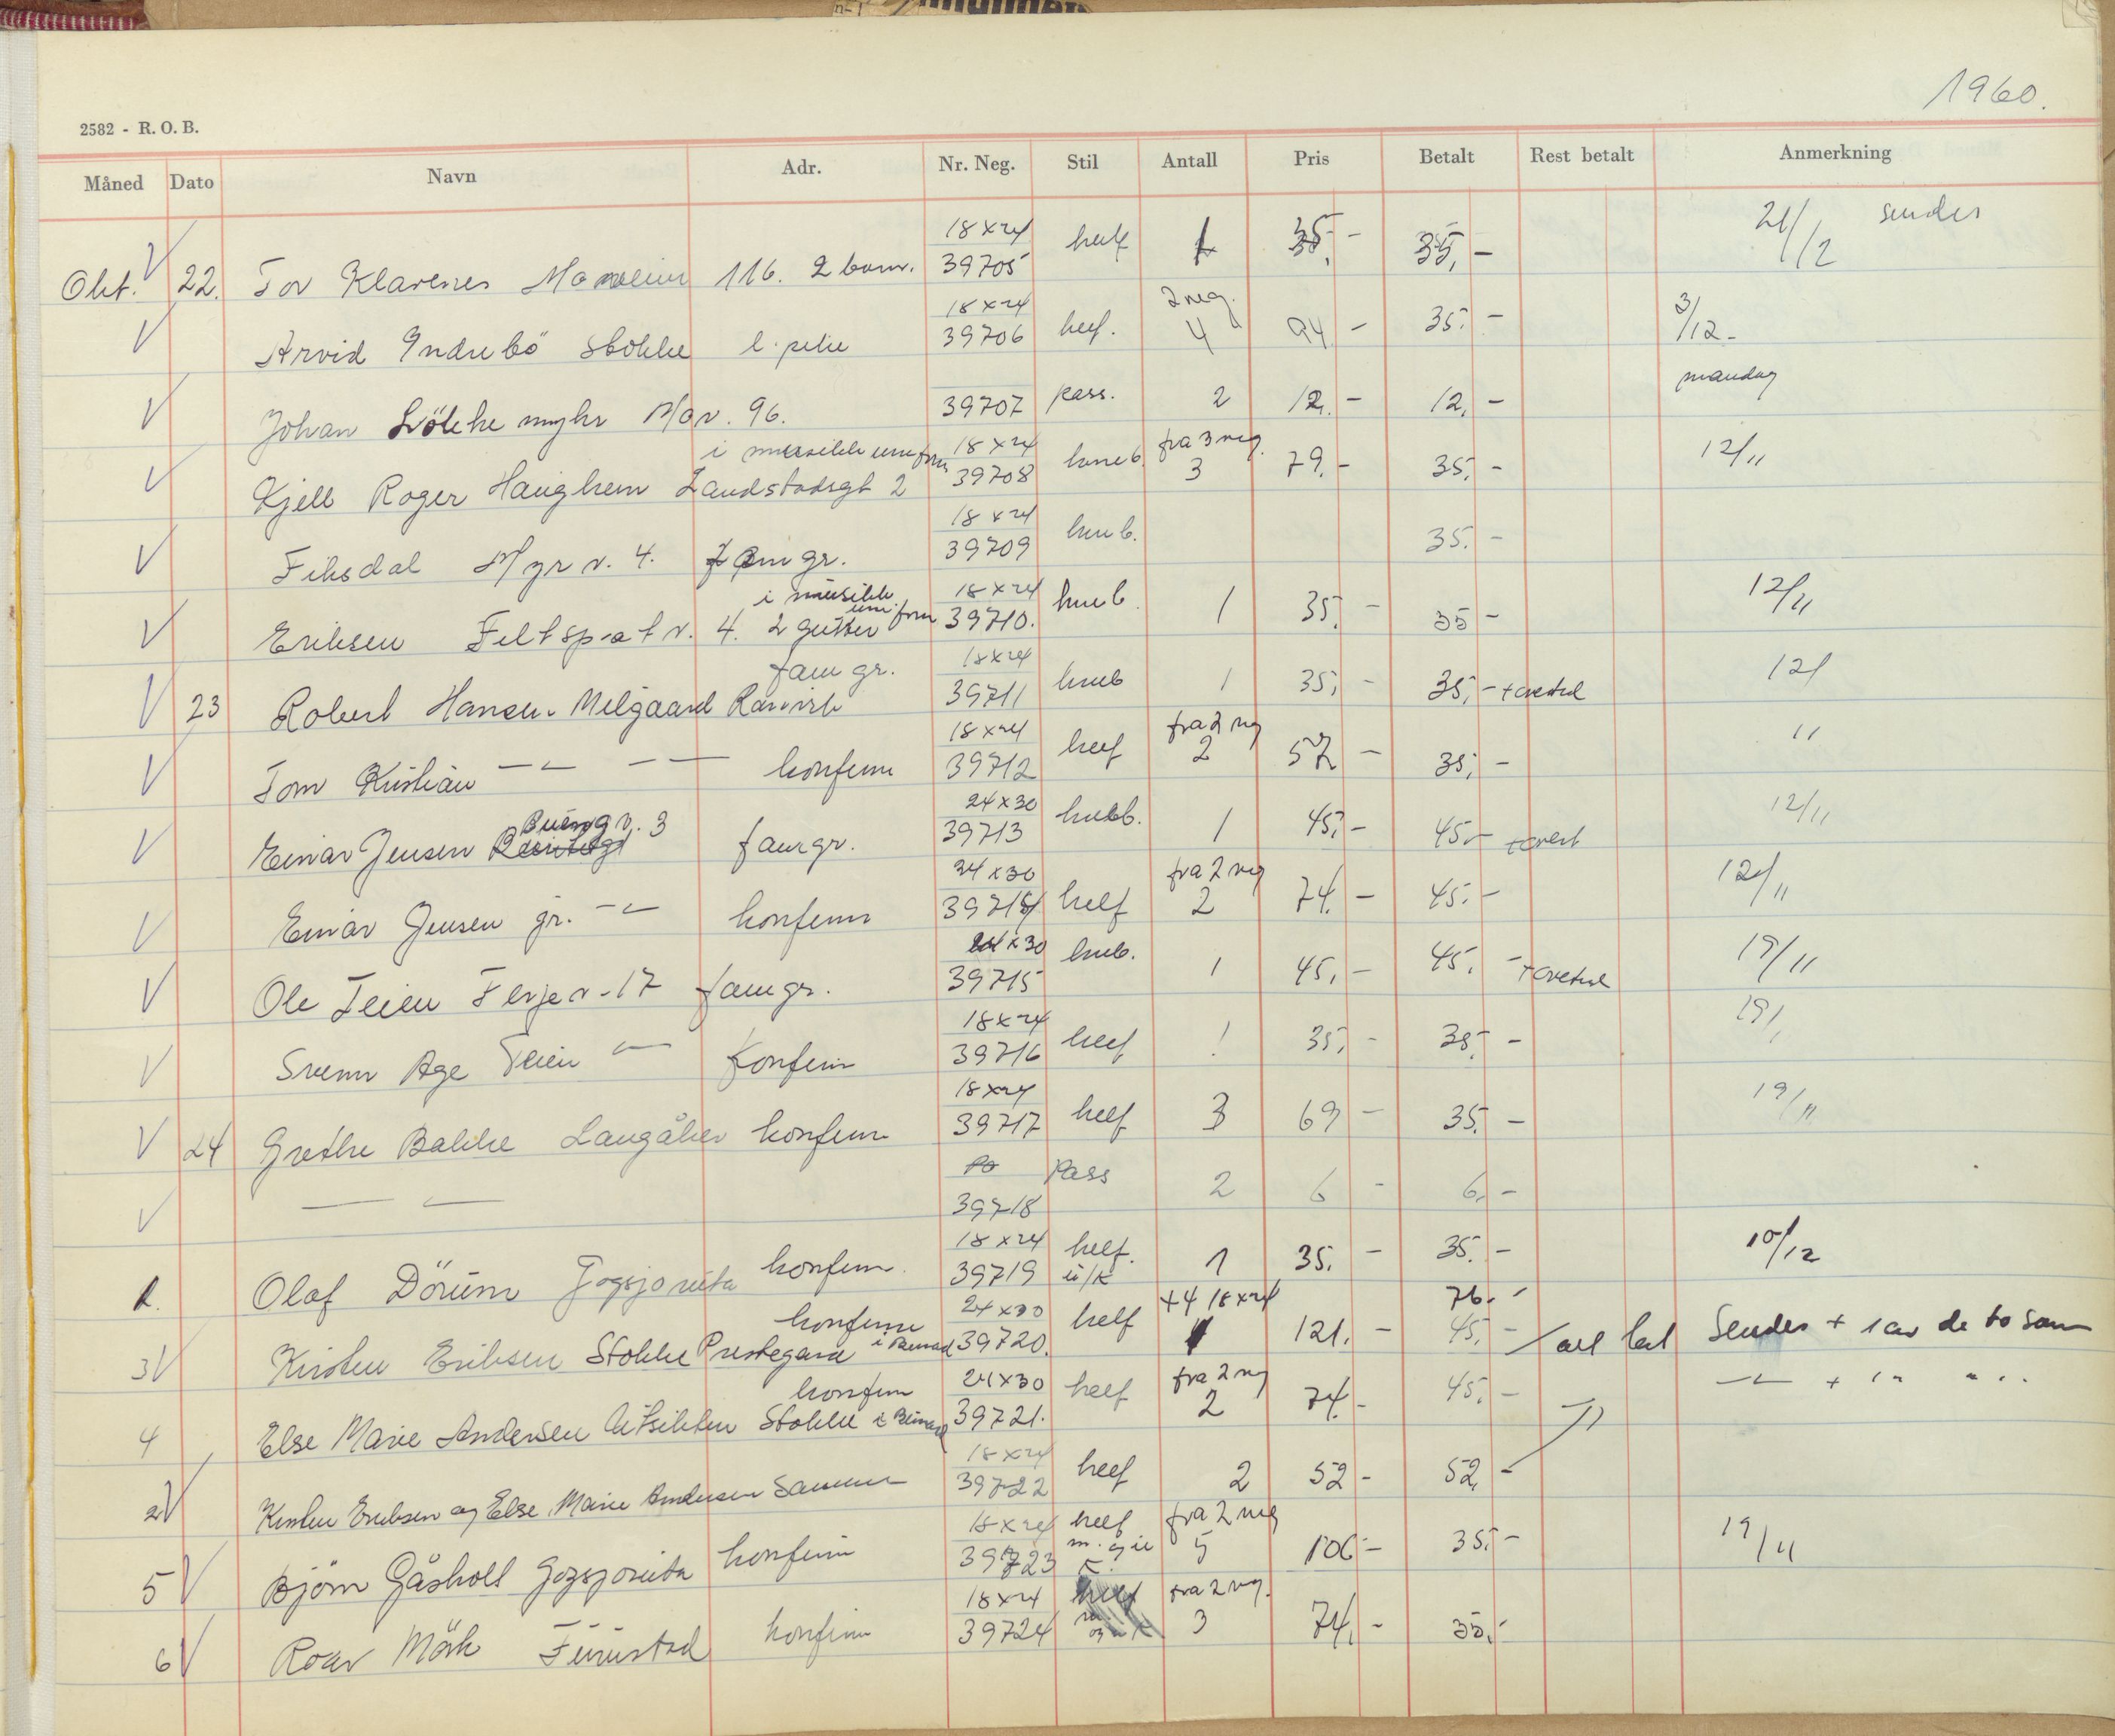 1960.
2582 - R. O. B.
Måned Dato Navn Adr. Nr. Neg. Stil Antall Pris Betalt Rest betalt Anmerkning
Okt. 22. Tor Klarenes 116. 2 barn. 18x24 39705 helf 1 35,- 35,- 21/12 sendes
Arvid Indrebö Stokke 18x24 39706 helf. 2 neg. 4 94 - 35,- 3/12-
Johan 96. 39707 pass. 2 12,- 12,- mandag
i musikk uniform
Kjell Roger Haughem Landstadsgt 2 18x24 39708 kneb. fra 3 neg. 3 79,- 35,- 12/11
Fiksdal Myr v. 4. fam gr. 18x24 39709 kneb. 35,-
i musikk uniform
Eriksen Feltspat v. 4. 2 gutter 18x24 39710. kneb. 1 35,- 35 - 12/11
fam gr.
23 Robert Hansen Melgaard 18x24 39711 kneb 1 35,- 35,- 12/
Tom Kristian -"- -"- konfirm 18x24 39712 helf fra 2 neg 2 57 - 35,- "
Einar Jensen 3 fam gr. 24x30 39713 1 45,- 45,- 12/11
Einar Jensen jr. -"- konfirm 24x30 39714 helf fra 2 neg 2 74,- 45,- 12/11
Ole Teien Ferje v. 17 fam gr. 24x30 39715 kneb. 1 45,- 45,- 19/11
Svenn Age Teien -"- konfirm 18x24 39716 helf 1 35,- 35,- 19/
24 Grethe Bakke Langåker konfirm 18x24 39717 helf 3 69 - 35,- 19/11
-"- 39718 Pass 2 6 - 6,-
1. Olaf Dörum konfirm. 18x24 39719 helf. u/k 1 35,- 35,- 10/12
konfirm
3 Kirsten Eriksen Stokke Prestegard i Bunad 24x30 39720. helf +4 18x24 1 121,- 76,- 45,- Sendes + 1 av de to sam
konfirm
4 Else Marie Andersen Stokke i Bunad 24x30 39721. helf fra 2 neg 2 74,- 45,- -"- + 1 " " "
2 Kirsten Eriksen og Else Marie Andersen sammen 18x24 39722 helf 2 52 - 52,-
5 Björn Gåsholt konfirm 18x24 39723 helf m. og u K. fra 2 neg 5 106 - 35,- 19/11
6 Roar Mörk Furustad konfirm 18x24 39724 helf fra 2 neg. 3 74,- 35,-